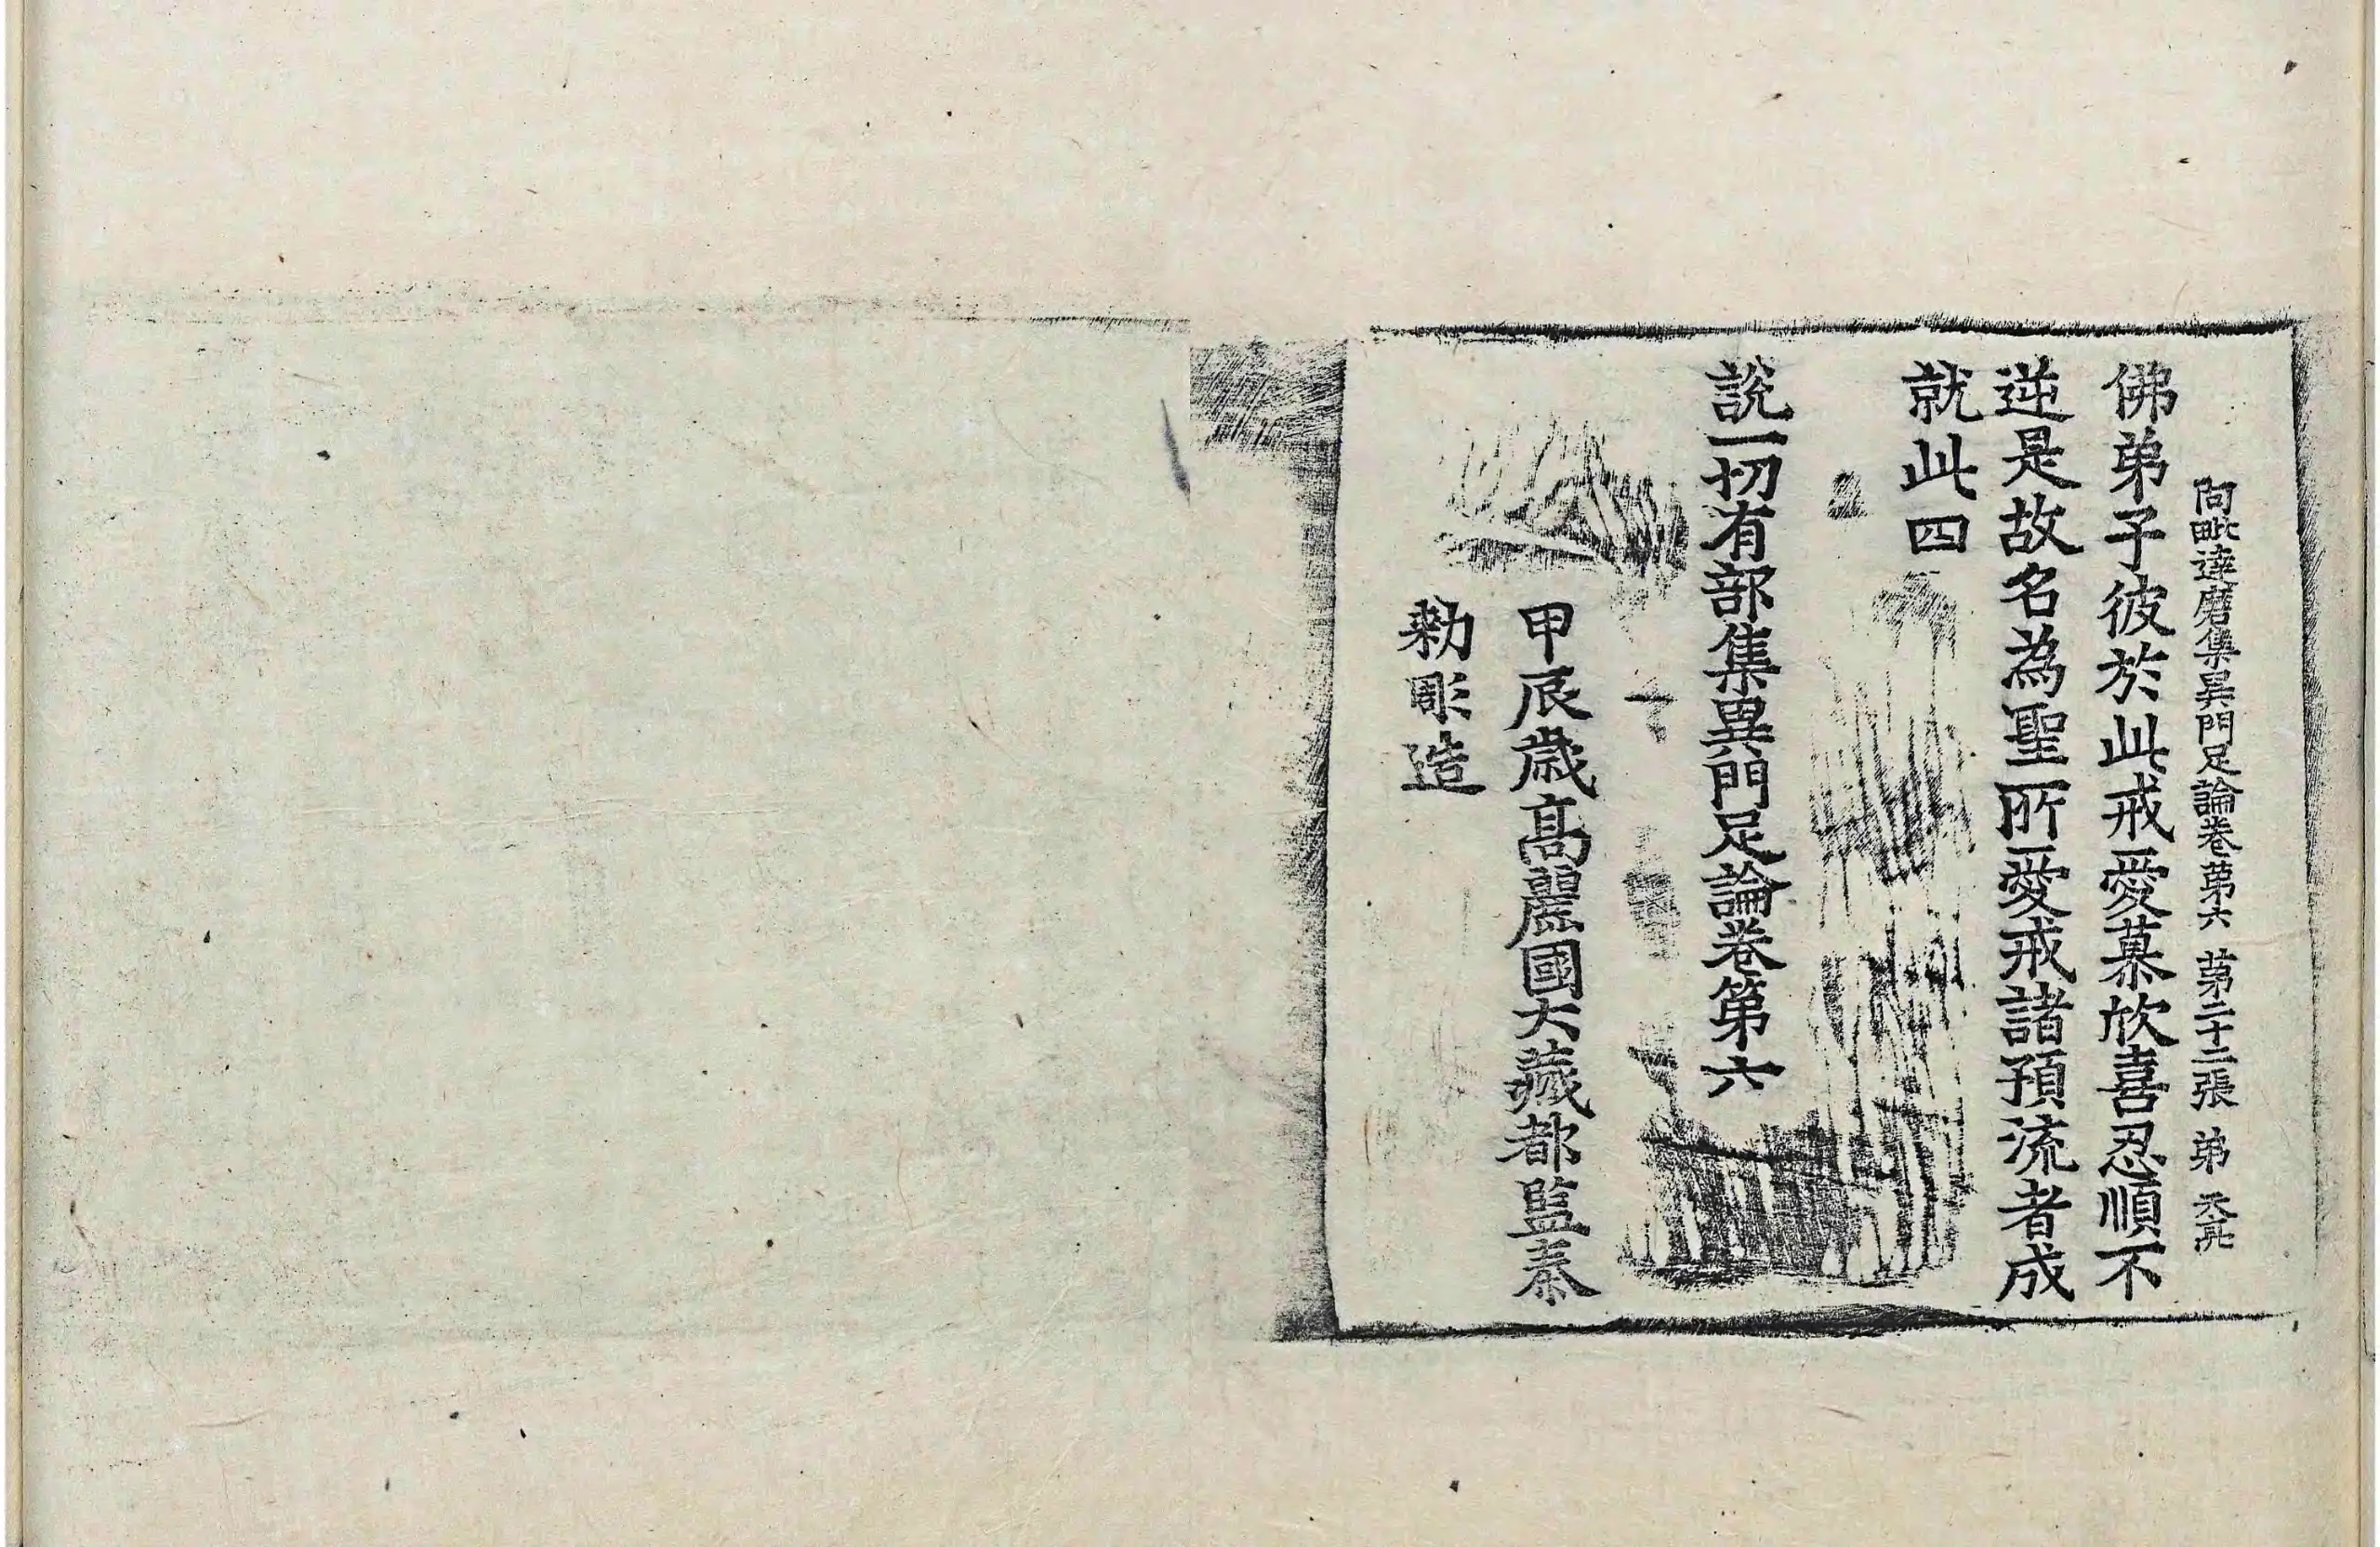 阿毗達磨集異門足論卷第六 第二十二張 弟
佛弟子彼於此戒愛慕欣喜忍順不
逆是故名為聖所愛戒諸預流者成
就此四
說一切有部集異門足論卷第六
甲辰歲高麗國大藏都監奉
勅彫造